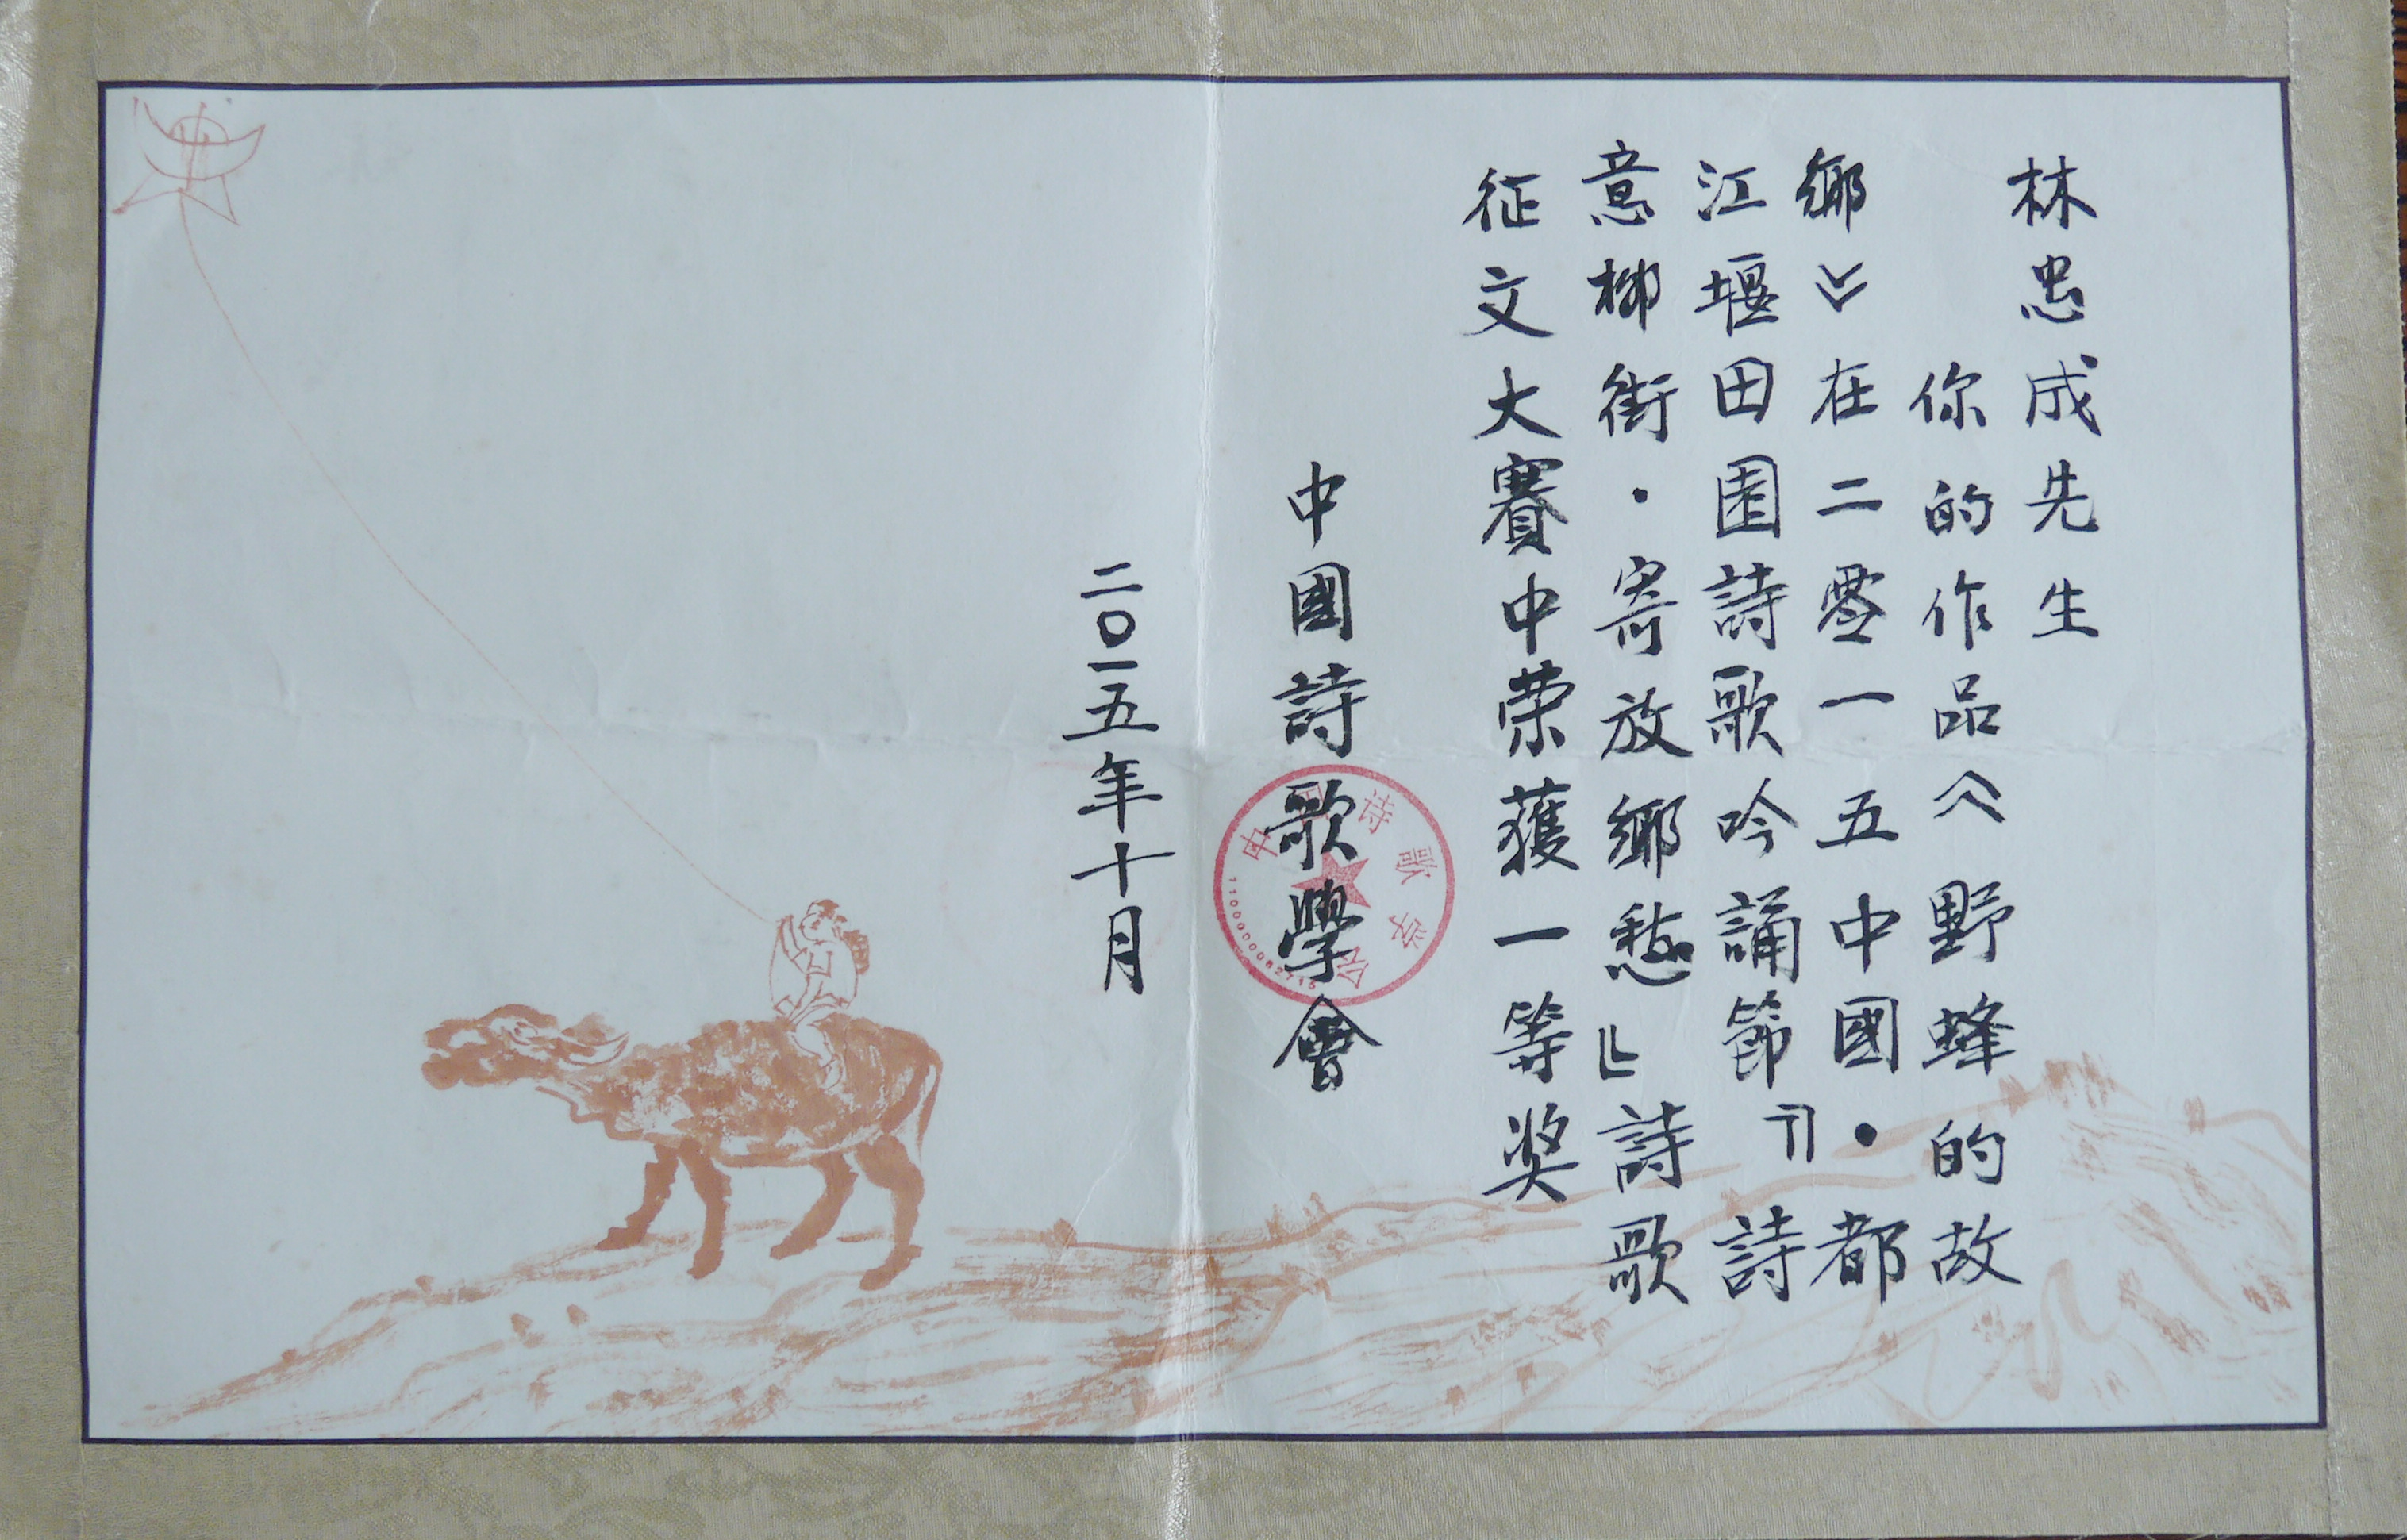 林忠成先生
你的作品《野蜂的故
鄉》在二零一五中國·都
江堰田園詩歌吟誦節『詩
意柳街·寄放鄉愁』詩歌
征文大賽中荣獲一等奖
中國詩歌學會
二〇一五年十月
中国诗歌学会